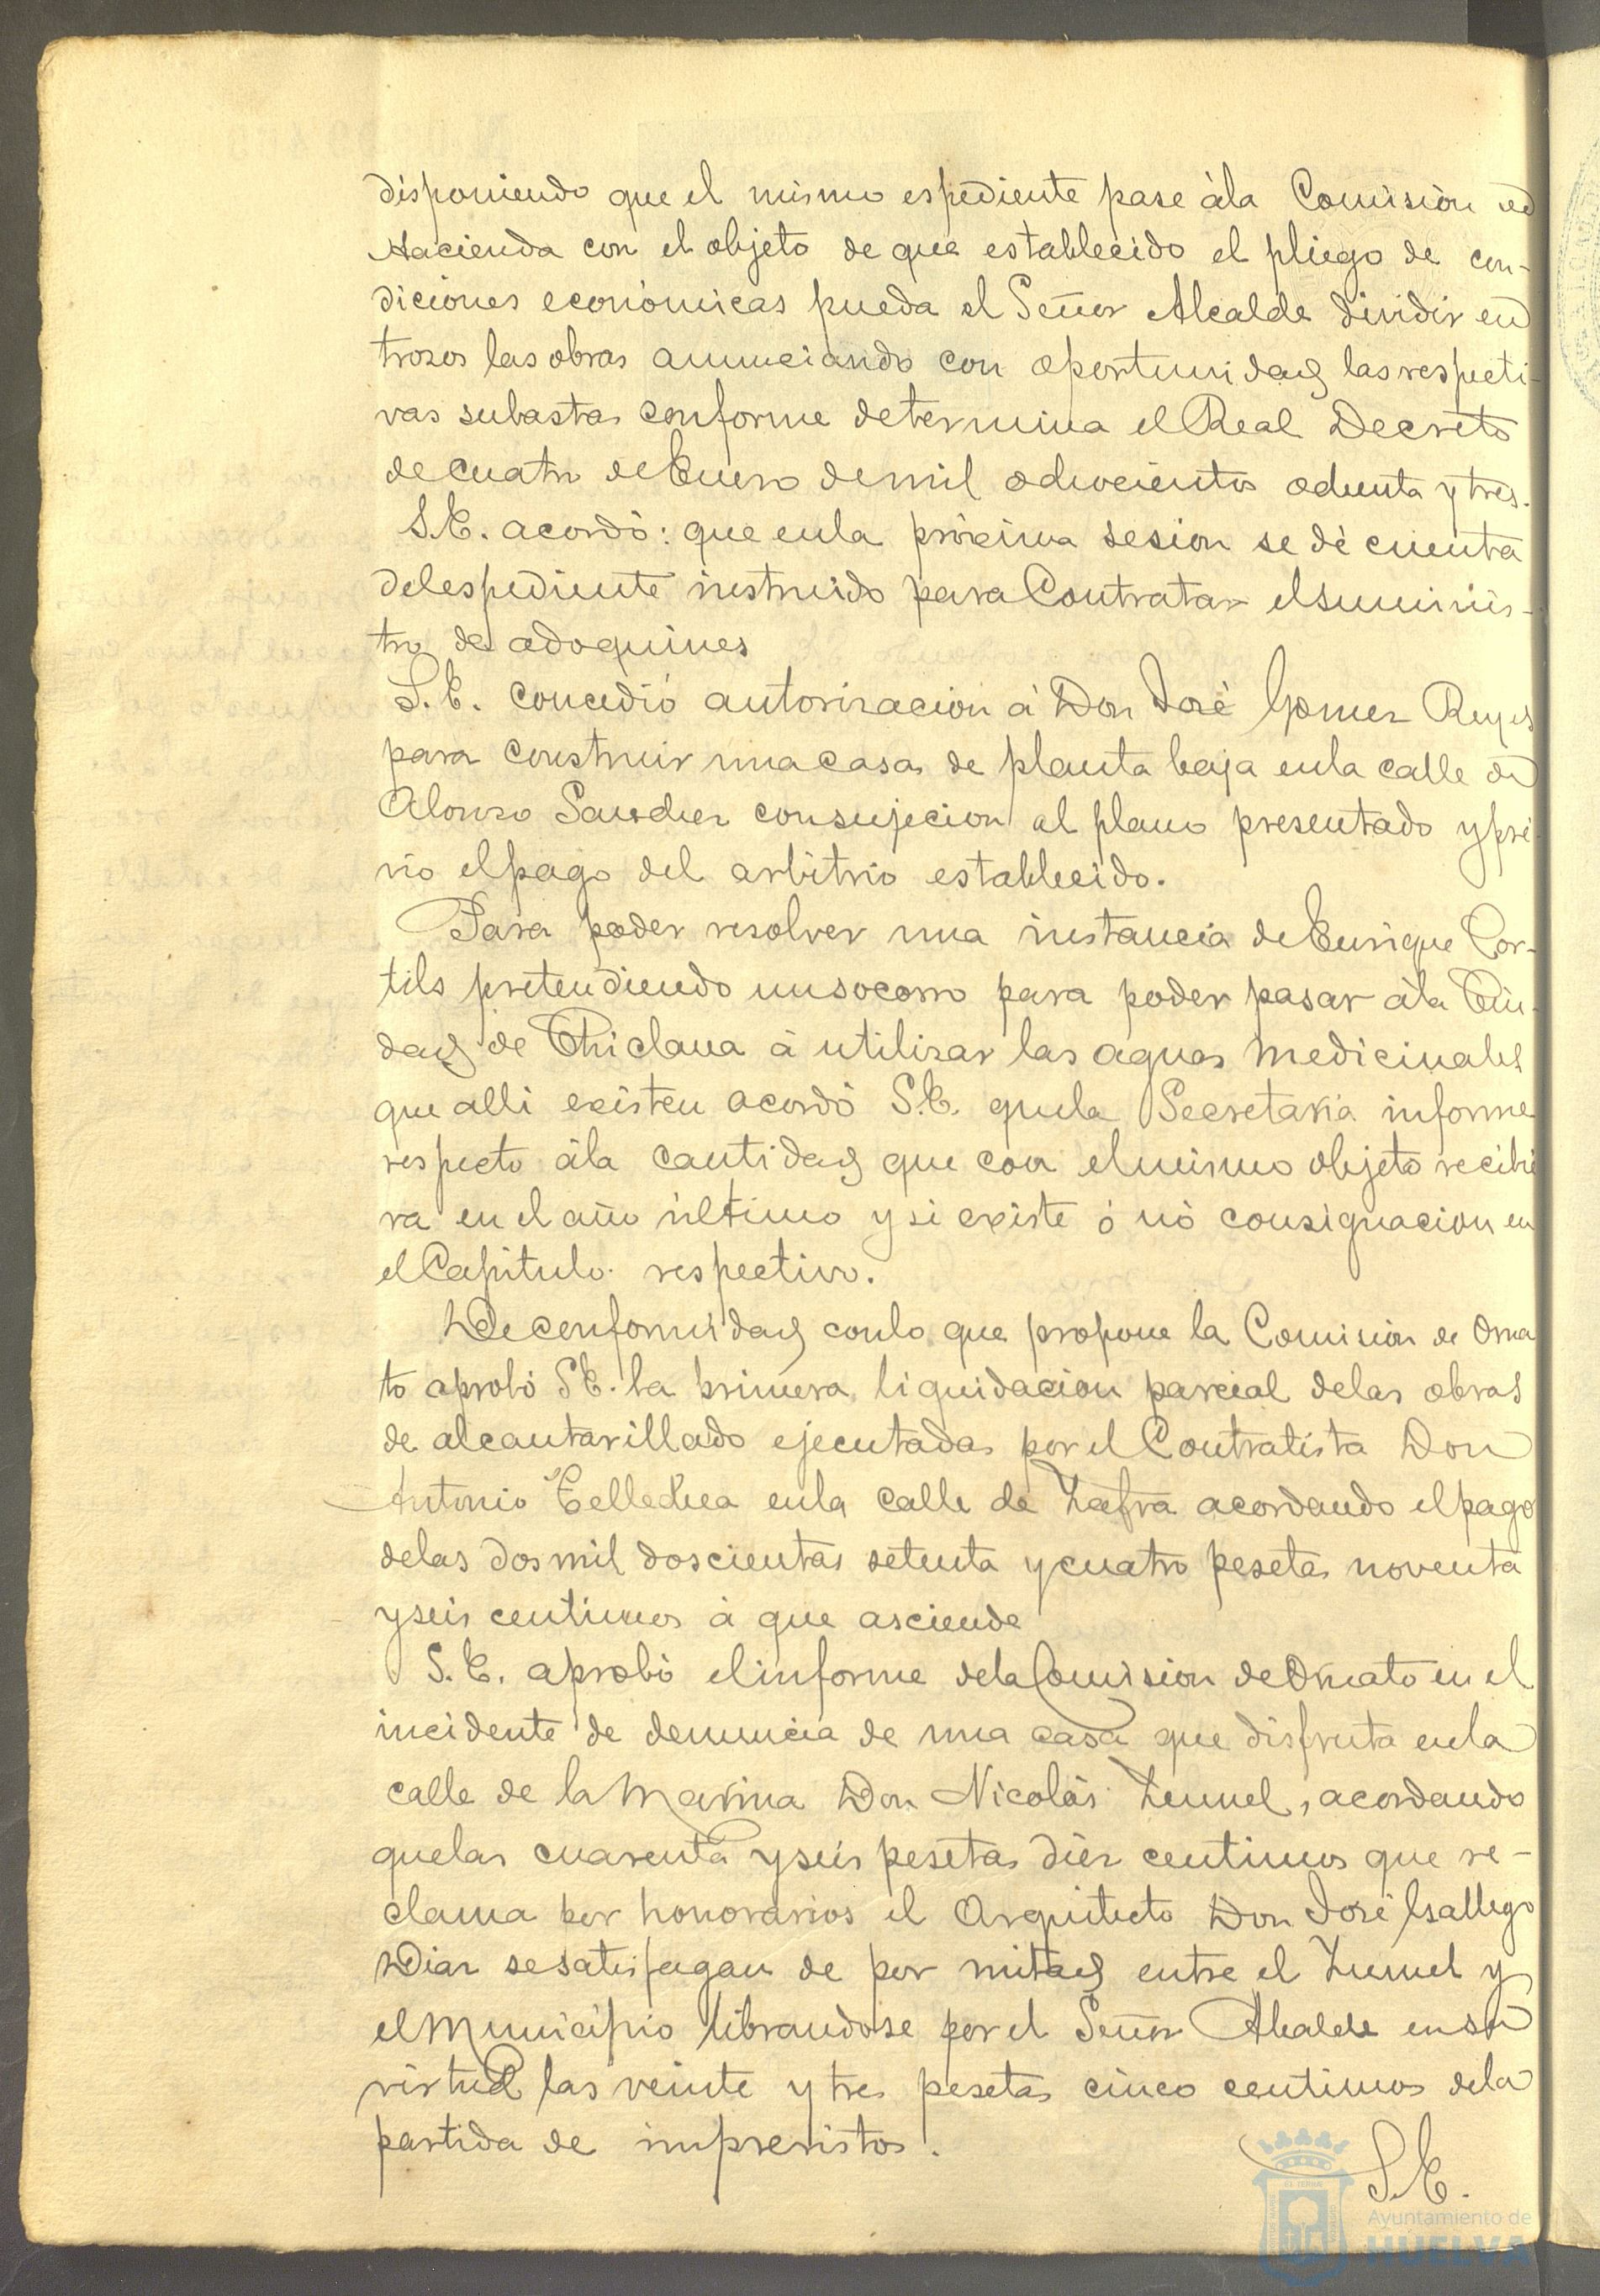 disponiendo que el mismo espediente pase à la Comisión de
Hacienda con el objeto de que establecido el pliego de con-
diciones económicas pueda el Señor Alcalde dividir en
trozos las obras anunciando con oportunidad las respecti-
vas subastas conforme determina el Real Decreto
de cuatro de Enero de mil ochocientos ochenta y tres.
S.E. acordó: que en la próxima sesion se dé cuenta
del espediente instruido para Contratar el suminis-
tro de adoquines
S.E. concedió autorizacion á Don José Gomez Reyes
para construir una casa de planta baja en la calle de
Alonso Sanchez con sujecion al plano presentado y pré-
vio el pago del arbitrio establecido.
Para poder resolver una instancia de Enrique Cor-
tils pretendiendo un socorro para poder pasar à la Ciu-
dad de Chiclana à utilizar las aguas medicinales
que alli existen acordó S.E. que la Secretaría informe
respecto àla cantidad que con el mismo objeto recibi
ra en el año último y si existe ó nó consignacion en
el Capítulo respectivo.
De conformidad con lo que propone la Comisión de Orna
to aprobó S.E. la primera liquidacion parcial de las obras
de alcantarillado ejecutadas por el Contratista Don
Antonio Tellechea en la calle de Zafra acordando el pago
de las dos mil doscientas setenta y cuatro pesetas noventa
y seis centimos à que asciende
S.E. aprobó el informe de la Comision de Ornato en el
incidente de denuncia de una casa que disfruta en la
calle de la Marina Don Nicolás Zumel, acordando
que las cuarenta y seis pesetas diez centimos que re-
clama por honorarios el Arquitecto Don José Gallego
Diaz se satisfagan de por mitad entre el Zumel y
el Municipio librandose por el Señor Alcalde en su
virtud las veinte y tres pesetas cinco centimos de la
partida de imprevistos.
S.E.
Ayuntamiento de
HUELVA